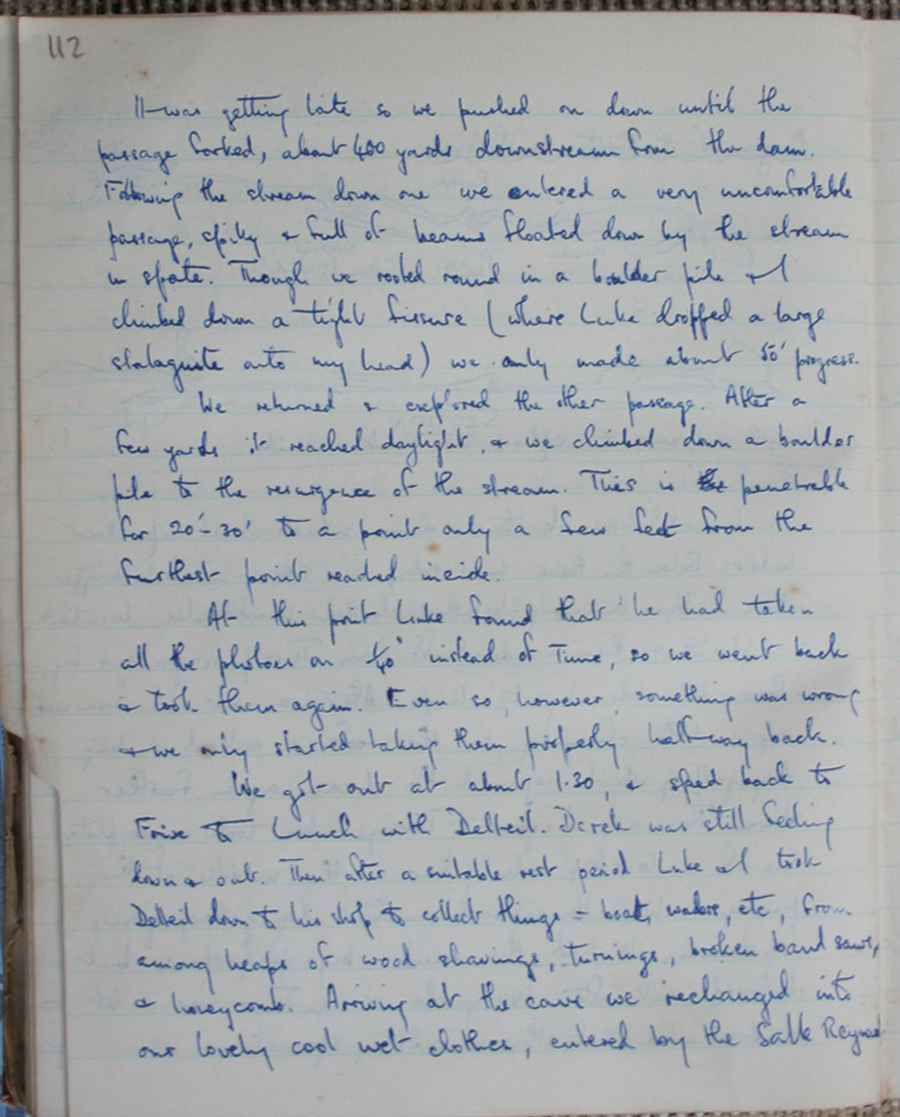 112
It was getting late so we pushed on down until the
passage forked, about 400 yards downstream from the dam.
Following the stream down one we entered a very uncomfortable
passage, spiky & full of beams floated down by the stream
in spate. Though we rooted round in a boulder pile & I
climbed down a tight fissure (where Luke dropped a large
stalagmite onto my head) we only made about 50' progress.
We returned & explored the other passage. After a
few yards it reached daylight, & we climbed down a boulder
pile to the resurgence of the stream. This is penetrable
for 20'-30' to a point only a few feet from the
furthest point reached inside.
At this point Luke found that he had taken
all the photos on 1/40" instead of Time, so we went back
& took them again. Even so, however, something was wrong
& we only started taking them properly half-way back.
We got out at about 1.30, & sped back to
to Lunch with Delteil. Derek was still feeling
down & out. Then after a suitable rest period Luke & I took
Delteil down to his shop to collect things - boat, waders, etc, from
among heaps of wood shavings, turnings, broken band saws,
& honeycomb. Arriving at the cave we rechanged into
our lovely cool wet clothes, entered by the Salle